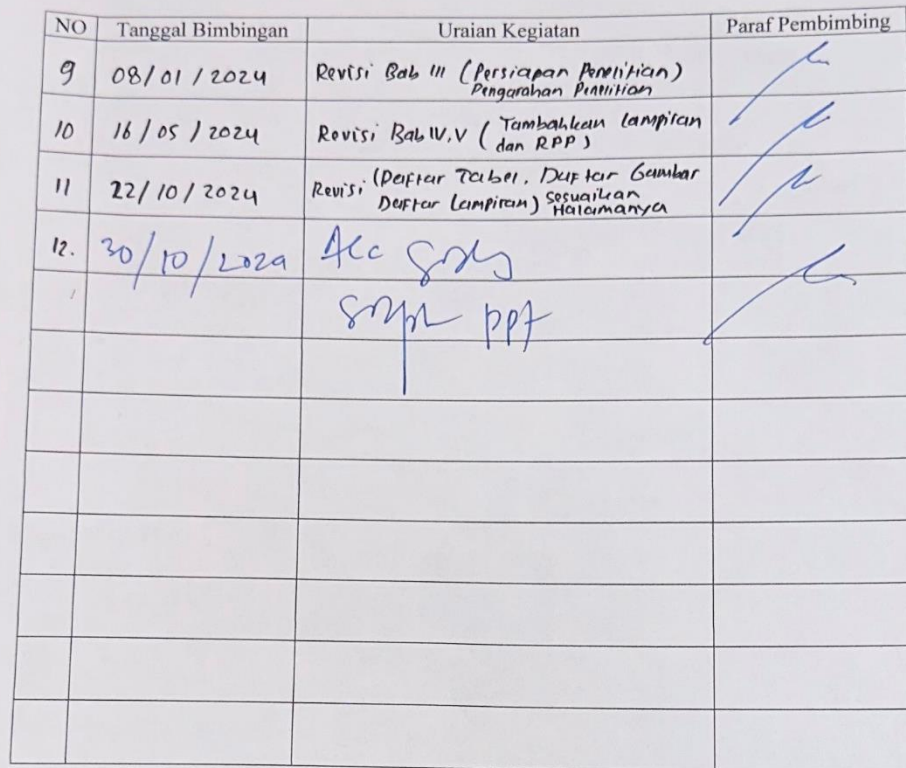 NO Tanggal Bimbingan Uraian Kegiatan Paraf Pembimbing
9 08/01/2024 Revisi Bab III (Persiapan Penelitian)
Pengarahan Penelitian
10 16/05/2024 Revisi Bab IV, V (Tambahkan Lampiran
dan RPP)
11 22/10/2024 Revisi (Daftar Tabel, Daftar Gambar
Daftar Lampiran) Sesuaikan
Halamanya
12. 30/10/2024 Acc
ppt